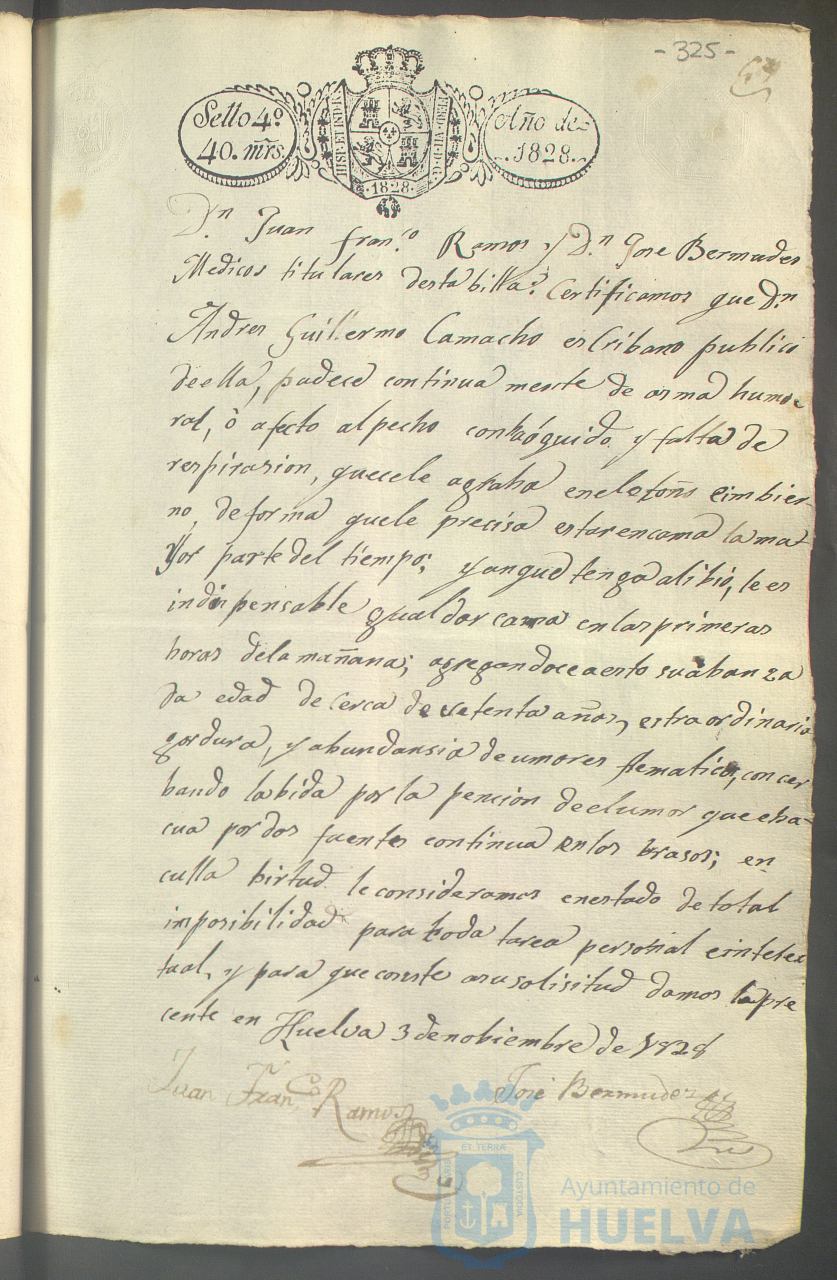 - 325 -
Sello 4º
40. mrs
HISP. ET IND. R.
FERD. VII. D. G.
· 1828 ·
Año de
1828.
Dn Juan Franco Ramos y Dn Jose Bermudes
Medicos titulares desta billa: Certificamos que Dn
Andres Guillermo Camacho escribano publico
de ella, padece continua mente de asma humo-
ral, ò afecto al pecho con haóguido y falta de
respirasion, que cele agraba en el otoño e imbier-
no, de forma que le precisa estar en cama la ma-
yor parte del tiempo; y anque tenga alibio, le es
indispensable gualdar cama en las primeras
horas de la mañana; agregandoce a esto su abanza
da edad de cerca de setenta años, estraordinaria
gordura, y abundansia de umores flematicos, concer
bando la bida por la pencion del umor que eba-
cua por dos fuentes continua en los brasos; en
culla birtud le consideramos en estado de total
imposibilidad para toda tarea personal e intelec
tual, y para que conste a su solisitud damos la pre
cente en Huelva 3 de nobiembre de 1828
Juan Franco Ramos
José Bermudez
ET TERRÆ
CUSTODIA
PORTUS MARIS
Ayuntamiento de
HUELVA